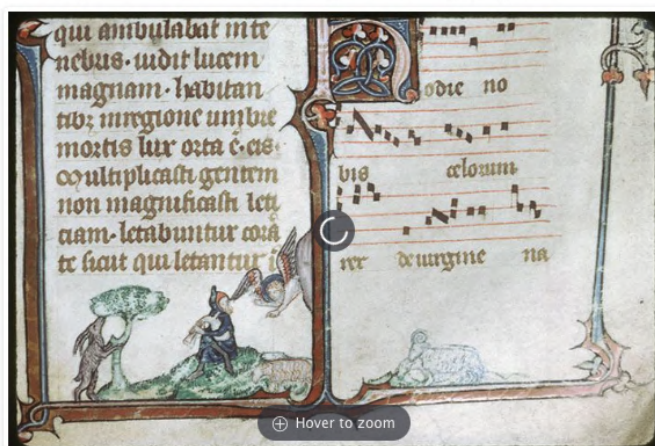 qui ambulabat in te
nebus · uidit lucem
magnam · habitan
tibz in regione umbre
mortis lux orta ē · eis ·
Multiplicasti gentem
non magnificasti leti
ciam · letabuntur corā
te sicut qui letantur i
Hodie no
bis celorum
rex de uirgine na
Hover to zoom